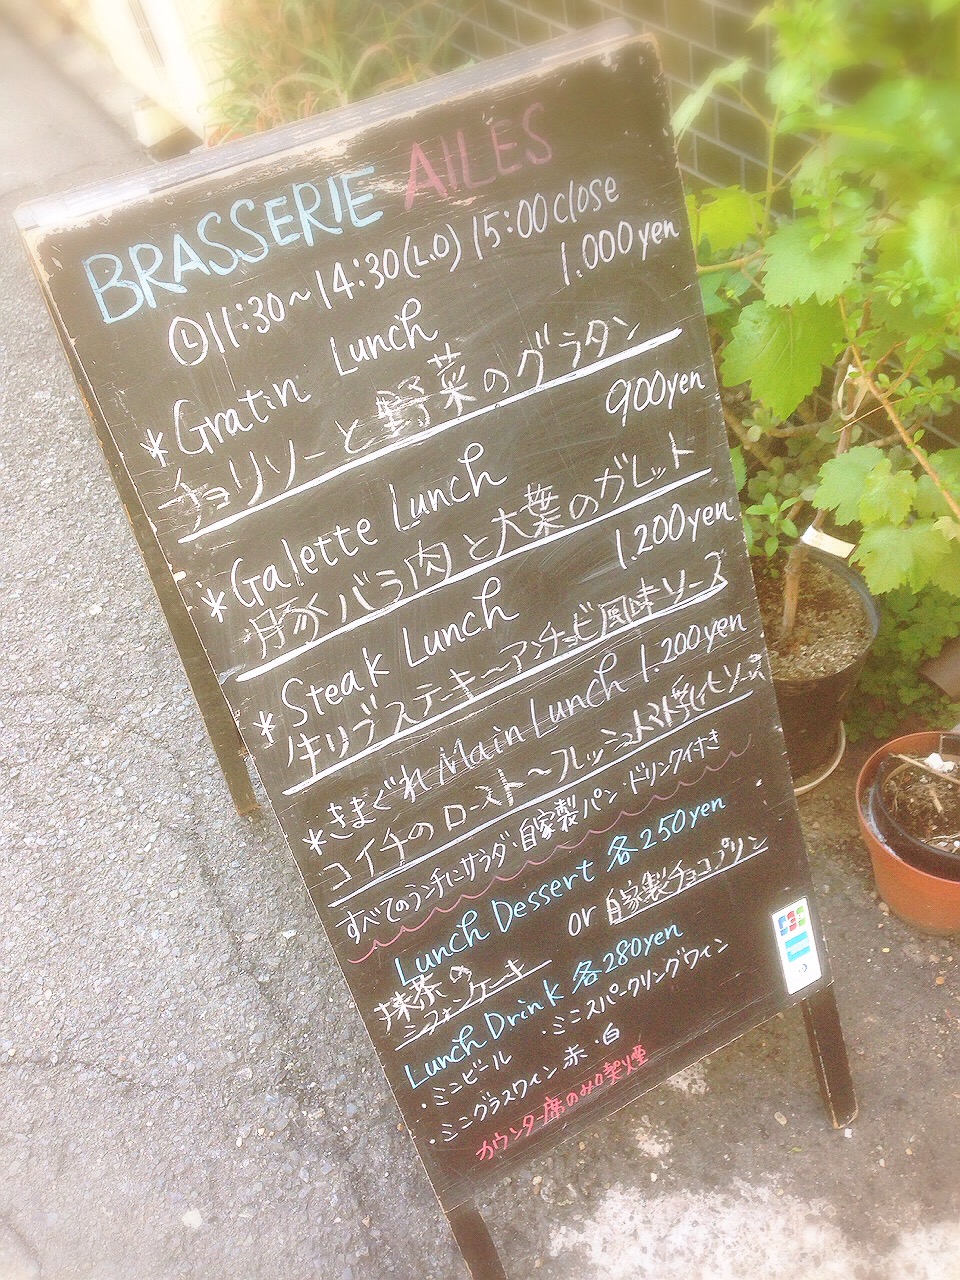 BRASSERIE AILES
11:30~14:30(L.O) 15:00 close
*Gratin Lunch 1.000yen
チョリソーと野菜のグラタン
*Galette Lunch 900yen
豚バラ肉と大葉のガレット
*Steak Lunch 1.200yen
牛リブステーキ〜アンチョビ風味ソース
*きまぐれ Main Lunch 1.200yen
コイチのロースト〜フレッシュトマト
すべてのランチにサラダ・自家製パン・ドリンク付き
Lunch Dessert 各250yen
抹茶のシフォンケーキ or 自家製チョコプリン
Lunch Drink 各280yen
・ミニビール ・ミニスパークリングワイン
・ミニグラスワイン 赤・白
カウンター席のみ喫煙
JCB